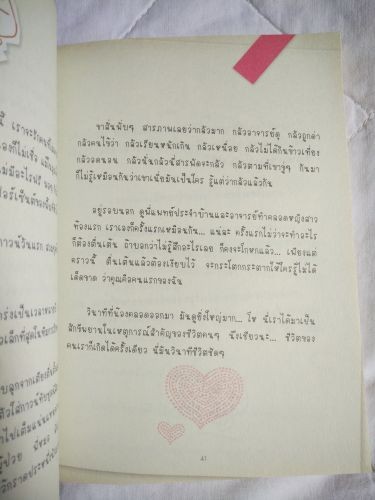 ขาสั่นพั่บๆ สารภาพเลยว่ากลัวมาก กลัวอาจารย์ดุ กลัวถูกด่า
กลัวคนไข้ว่า กลัวเรียนหนักเกิน กลัวเหนื่อย กลัวไม่ได้กินข้าวเที่ยง
กลัวอดนอน กลัวนั่นกลัวนี่สารพัดจะกลัว กลัวตามที่เขาขู่ๆ กันมา
ก็ไม่รู้เหมือนกันว่าเขาเนี่ยมันเป็นใคร รู้แต่ว่ากลัวแล้วกัน
อยู่รอบนอก ดูพี่แพทย์ประจำบ้านและอาจารย์ทำคลอดหญิงสาว
ท้องแรก เราเองก็ครั้งแรกเหมือนกัน... แน่ละ ครั้งแรกไม่ว่าจะทำอะไร
ก็ต้องตื่นเต้น ถ้าบอกว่าไม่รู้สึกอะไรเลย ก็คงจะโกหกแล้ว...เพียงแต่
คราวนี้ ตื่นเต้นแล้วต้องเงียบไว้ จะกระโตกกระตากให้ใครรู้ไม่ได้
เด็ดขาด ว่าคุณคือคนแรกของฉัน
วินาทีที่น้องคลอดออกมา มันดูยิ่งใหญ่มาก... โห นี่เราได้มาเป็น
สักขีพยานในเหตุการณ์สำคัญของชีวิตคนๆ นึงเชียวนะ... ชีวิตของ
คนเราก็เกิดได้ครั้งเดียว นี่มันวินาทีชีวิตชัดๆ
41